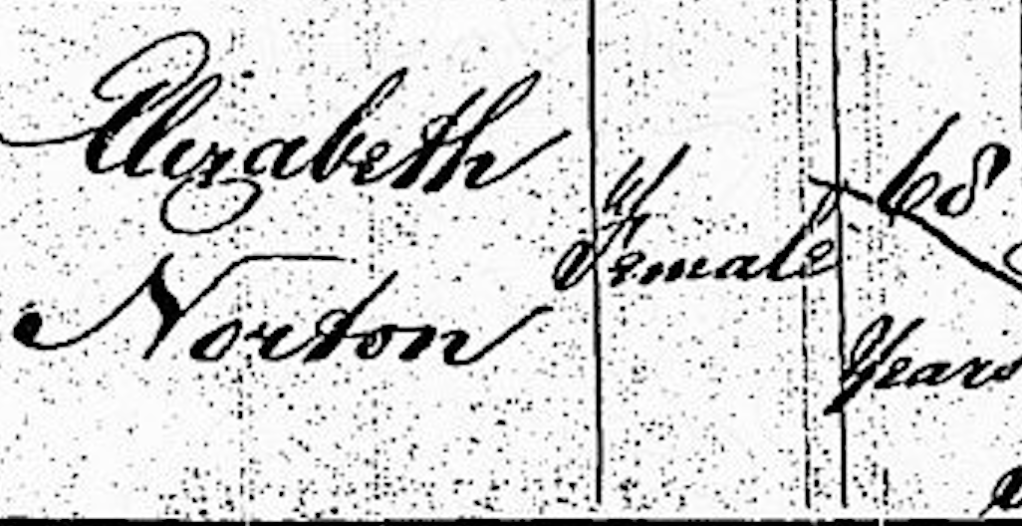 Elizabeth
Norton
Female
68
Years